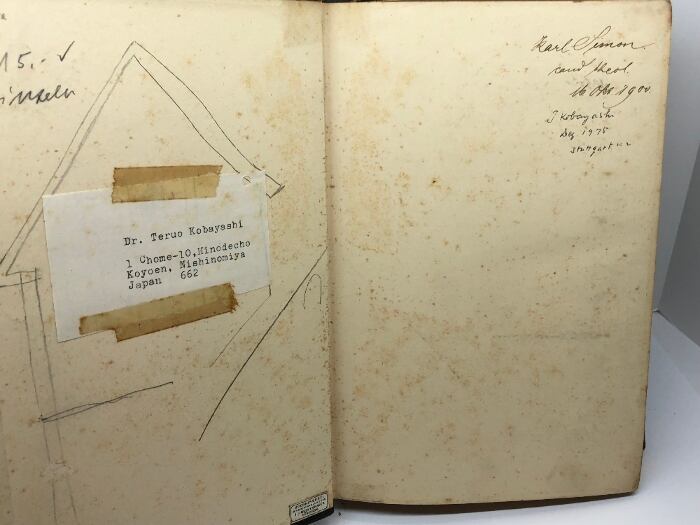 15.- ✓
inzeln
Dr. Teruo Kobayashi
1 Chome-10,Hinodecho
Koyoen, Nishinomiya
Japan 662
Karl Simon
cand theol.
16 Okt. 1900.
T Kobayashi
Dez 1975
Stuttgart